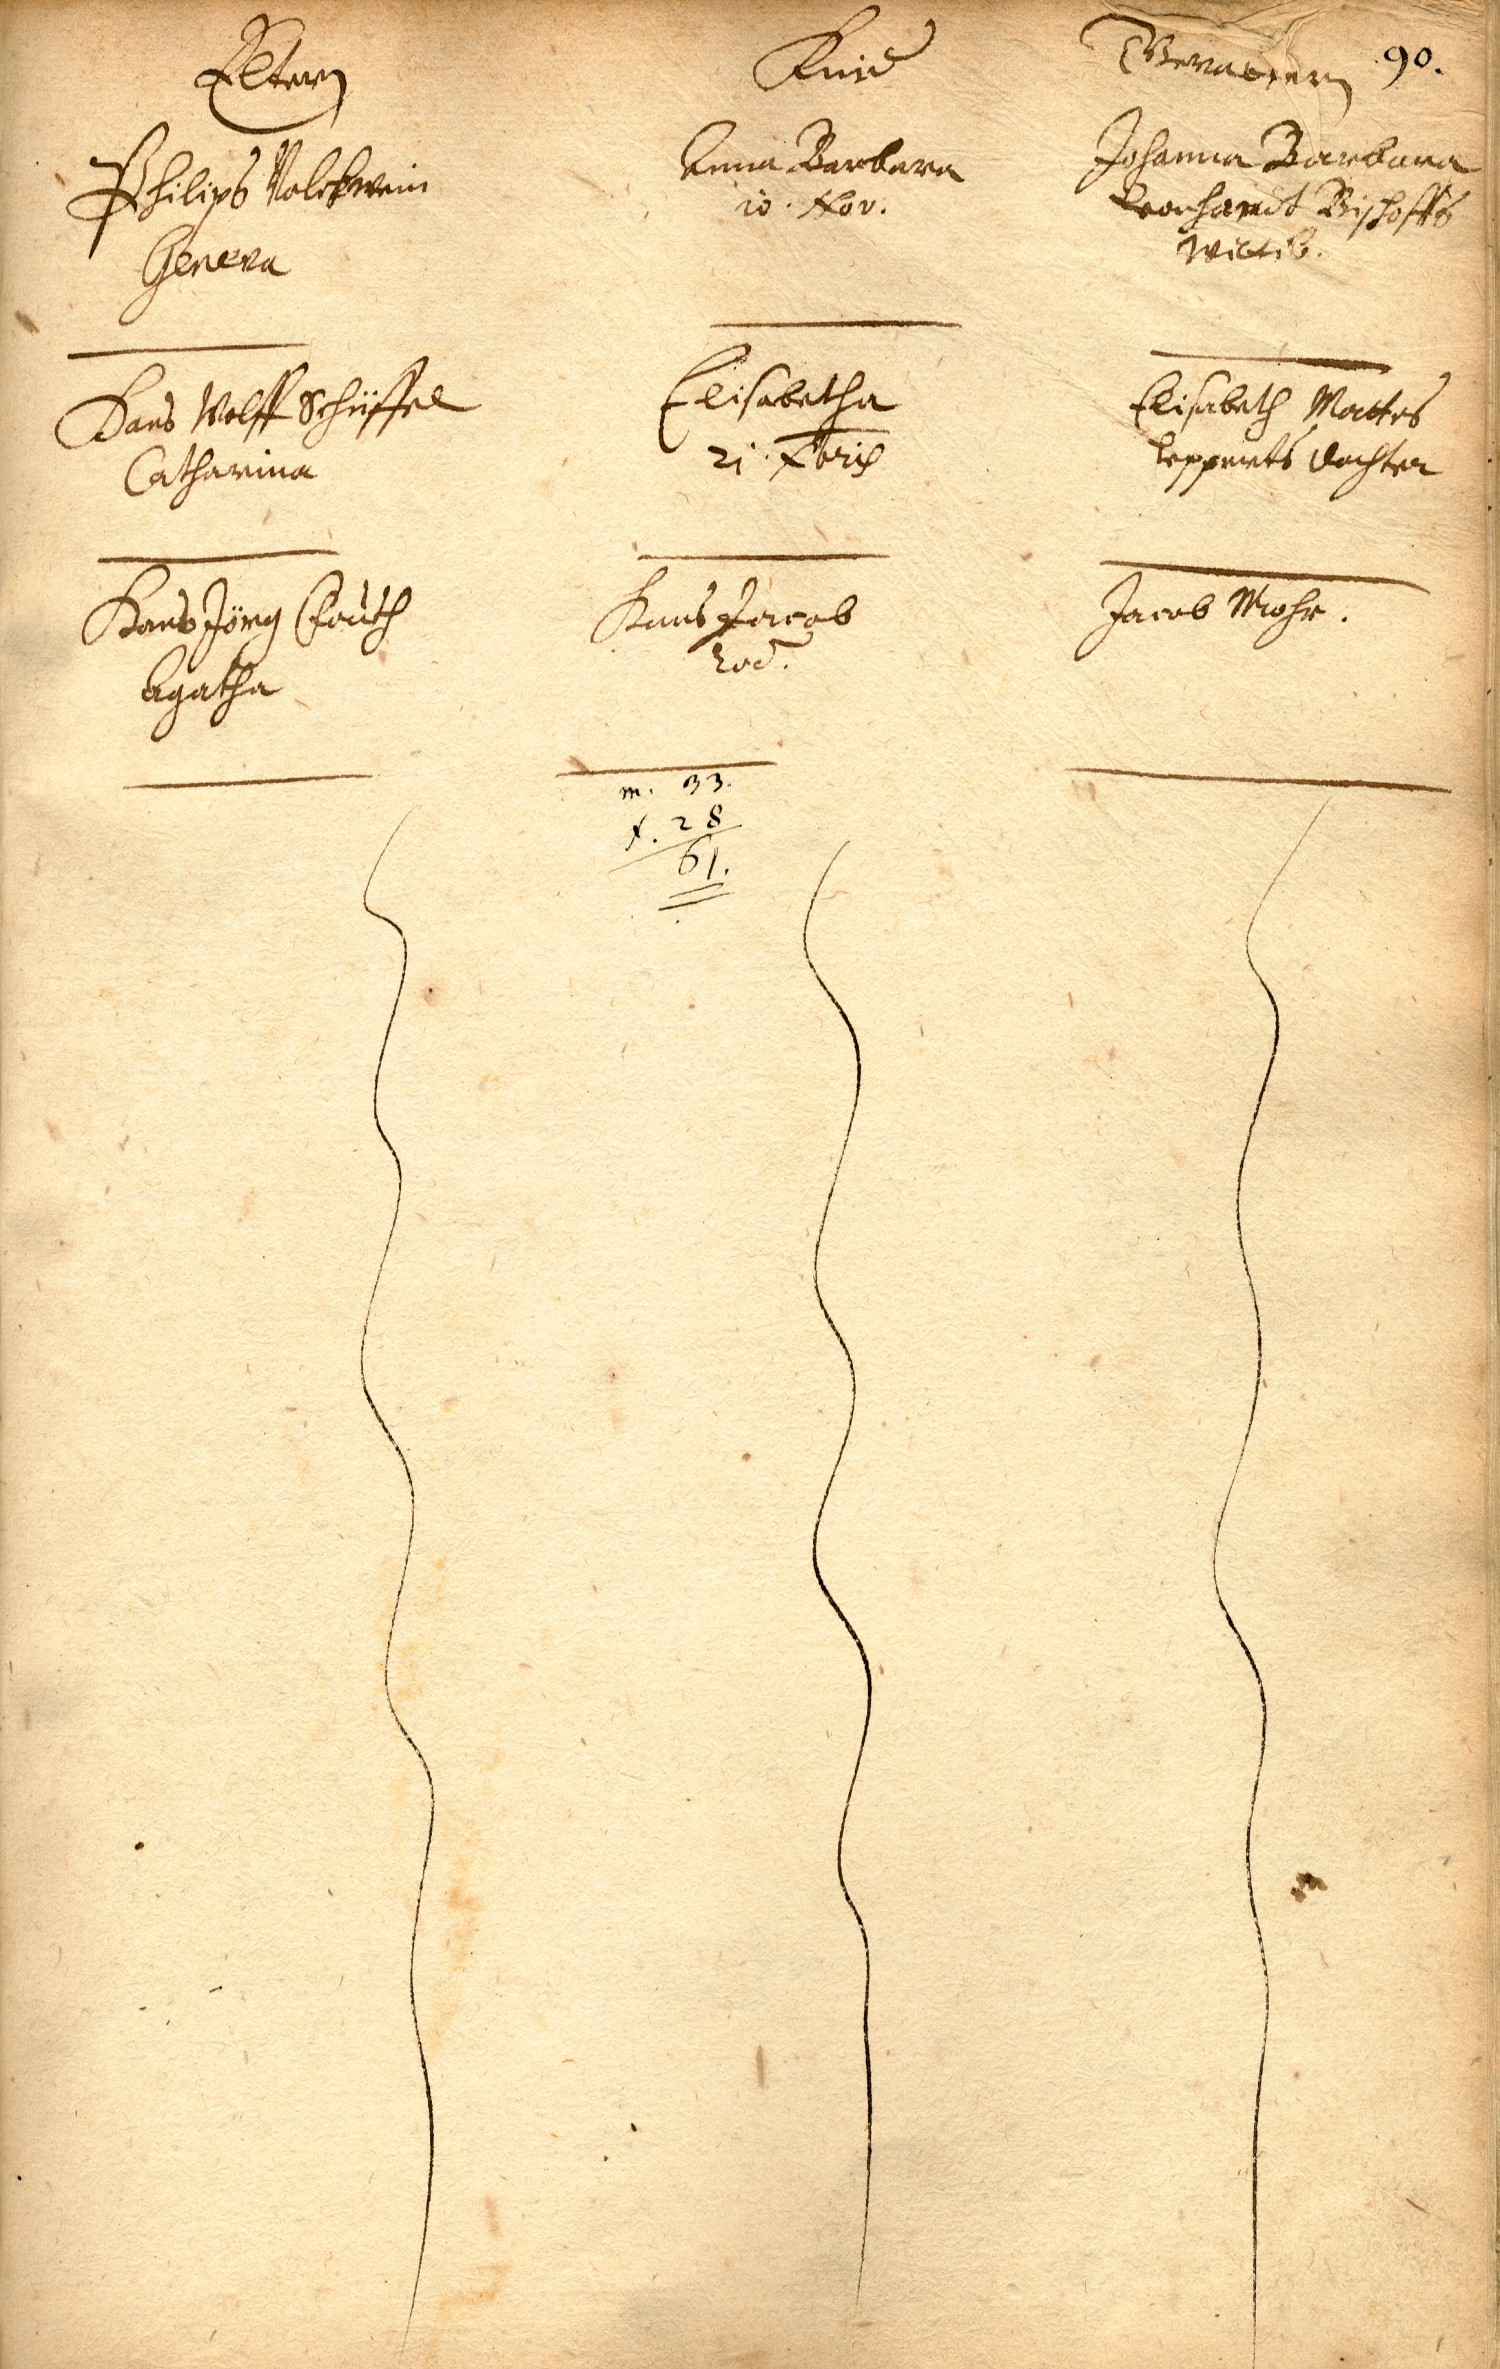 Eltern
Kind
Gevattern
90.
Philips Volckwein
Geneva
Anna Barbara
10. Nov.
Johanna Barbara
Leonhardt Bischoffs
Wittib.
Hans Wolff Schüffel
Catharina
Elisabetha
21. Xbris
Elisabeth Mattes
Lepperts dochter
Hans Jörg
Agatha
Hans Jacob
eod.
Jacob Mohr.
m. 33.
f. 28
61.